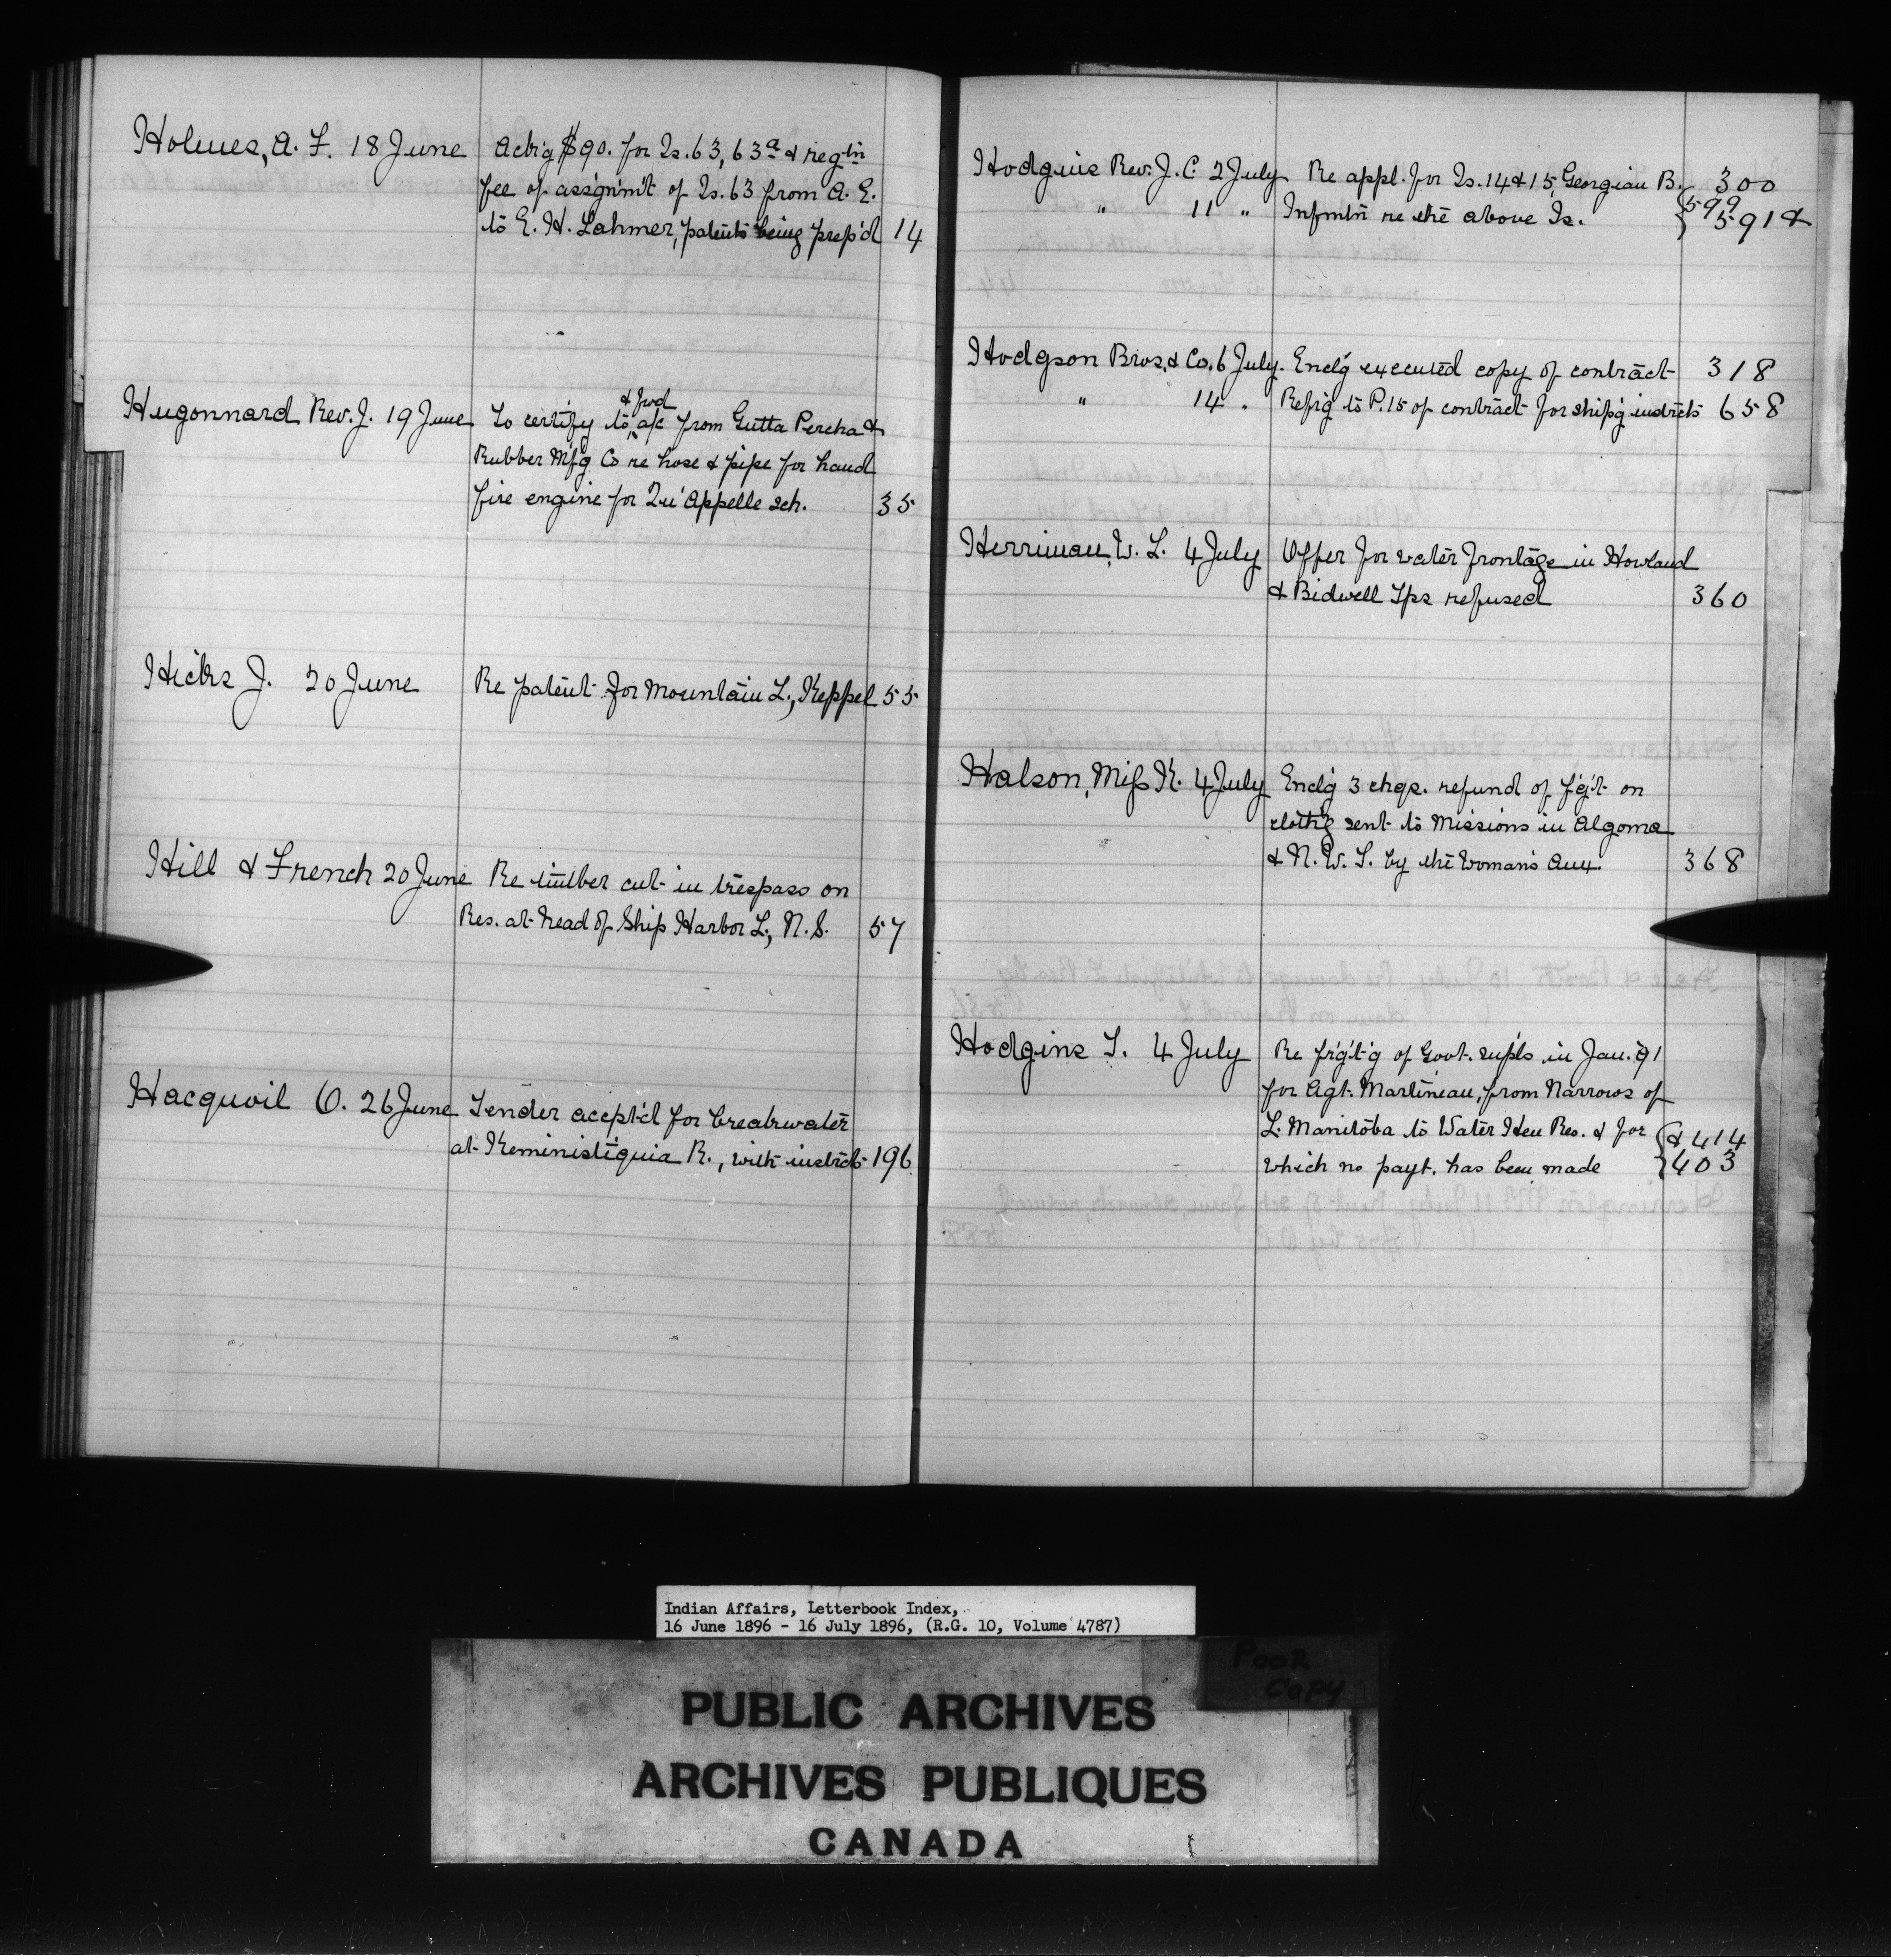 Holmes, A. F. 18 June Ackn'g $90. for Is. 63, 63a & reg'tn
fee of assign'm't of Is. 63 from A. E.
to E. H. Lahmer, patents being prep'd 14
Hugonnard Rev. J. 19 June To certify to & fwd a/c from Gutta Percha &
Rubber M'f'g Co re hose & pipe for hand
fire engine for Qu'Appelle sch. 35
Hicks J. 20 June Re patent for Mountain L., Keppel 55
Hill & French 20 June Re timber cut in trespass on
Res. at head of Ship Harbor L., N. S. 57
Hacquoil O. 26 June Tender accpt'd for breakwater
at Keministiquia R., with instrcts 196
Hodgins Rev. J. C. 2 July Re appl. for Is. 14 & 15, Georgian B. 300
" 11 " Infmtn re the above Is. { 599
591 &
Hodgson Bros. & Co. 6 July. Encl'g executed copy of contract 318
" 14 " Ref'g to P. 15 of contract for ship'g instrcts 658
Herriman, W. L. 4 July Offer for water frontage in Howland
& Bidwell Tps refused 360
Halson, Miss K. 4 July Encl'g 3 chqs. refund of f'g't on
cloth'g sent to Missions in Algoma
& N. W. T. by the Woman's Aux. 368
Hodgins T. 4 July Re fr'g't'g of Govt. supls in Jan. '91
for Agt. Martineau, from Narrows of
L. Manitoba to Water Hen Res. & for { & 414
which no payt. has been made 403
Indian Affairs, Letterbook Index,
16 June 1896 - 16 July 1896, (R.G. 10, Volume 4787)
POOR
COPY
PUBLIC ARCHIVES
ARCHIVES PUBLIQUES
CANADA